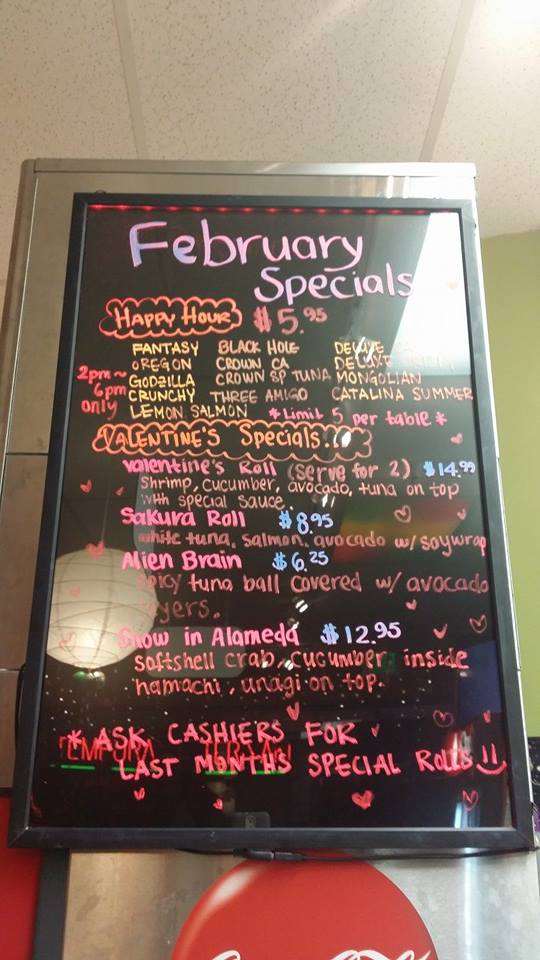 February
Specials
HAPPY HOUR $5.95
2pm~
6pm
only
FANTASY BLACK HOLE DELUXE
OREGON CROWN CA DELUXE
GODZILLA CROWN SP TUNA MONGOLIAN
CRUNCHY THREE AMIGO CATALINA SUMMER
LEMON SALMON *Limit 5 per table*
VALENTINE'S Specials...
Valentine's Roll (serve for 2) $14.99
Shrimp, cucumber, avocado, tuna on top
with special sauce.
Sakura Roll $8.95
white tuna, salmon, avocado w/ soywrap
Alien Brain $6.25
spicy tuna ball covered w/ avocado
layers.
Snow in Alameda $12.95
softshell crab, cucumber inside
hamachi, unagi on top.
* ASK CASHIERS FOR
LAST MONTHS SPECIAL ROLLS!!
TEMPURA